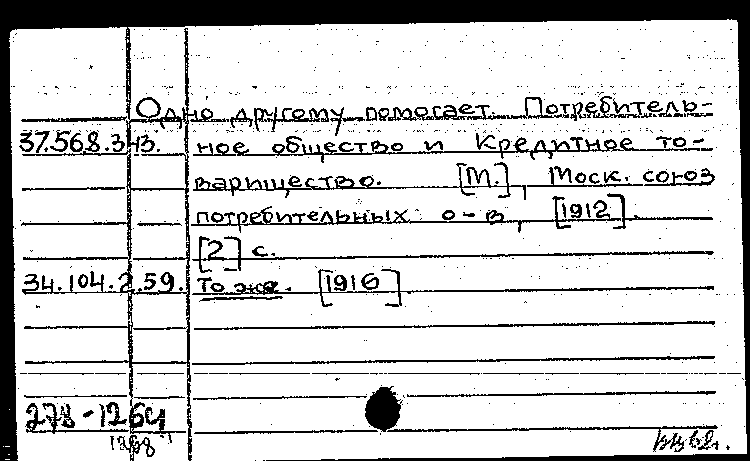 Одно другому помогает. Потребитель-
37.568.343. ное общество и Кредитное то-
варищество. [М.], Моск. союз
потребительных о-в, [1912].
[2] с.
34.104.2.59. То же. [1916]
278-1264